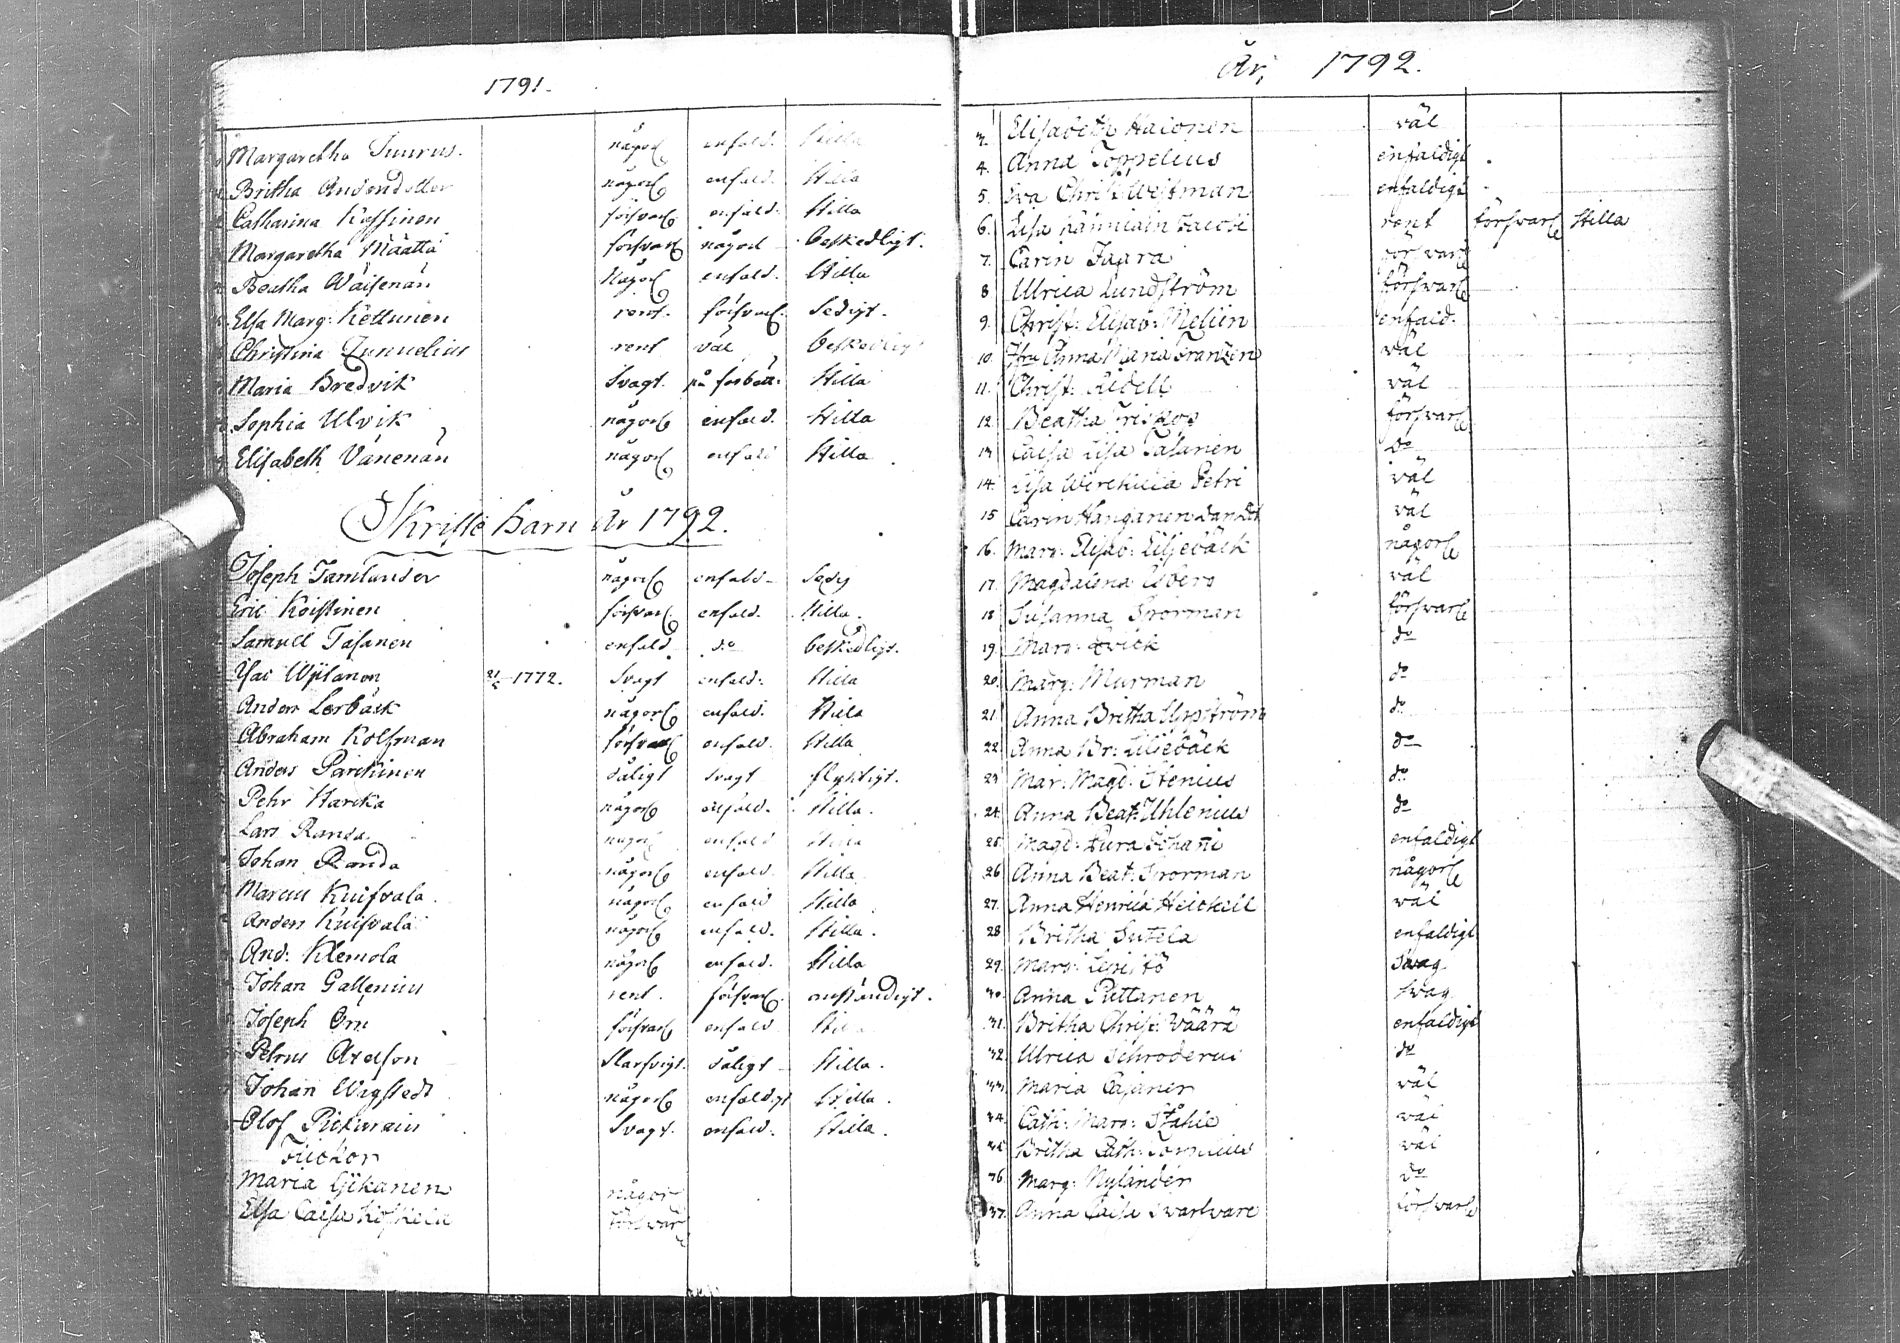 1791.
Margaretha Tuurus. någorl enfald. Stilla
Britha Andersdotter någorl enfald. Stilla
Catharina Koffinen försvarl enfald. Stilla
Margaretha Määttä försvarl någorl beskedligt.
Beatha Wäisenän Någorl enfald. Stilla
Elsa Marg: Kettunen rent. försvarl. Sedigt.
Christina rent väl beskedligt
Maria Bredvik Svagt. på förbätt: Stilla
Sophia Ulvik någorl enfald. Stilla
Elisabeth Vänenän någorl enfald Stilla
Skriftebarn år 1792.
Joseph Tamlander någorl enfald Sedig
Eric Koistinen försvarl enfald. Stilla.
Samuel Tasanen enfald do beskedligt.
Isac 1772. Svagt enfald. Stilla
Anders Lerbäck någorl enfald. Stilla
Abraham Kolfman försvarl enfald. Stilla
Anders Parckinen dåligt svagt flyktigt.
Pehr Harcka någorl enfald. Stilla.
Lars Randa någorl enfald Stilla
Johan Randa någorl enfald. Stilla
Marcus Kuifvala någorl enfald Stilla
Anders Kuifvala någorl enfald. Stilla.
And: Klemola någorl enfald. Stilla
Johan Gallenius rent. försvarl. anständigt.
Joseph Orn försvarl enfald Stilla
Petrus Axelson Slarfvigt. dåligt Stilla.
Johan Wagstedt någorl enfaldigt Stilla.
Olof Pickarain Svagt. enfald. Stilla.
Flickor
Maria Gikanen någorl
Elsa Caisa Koskela försvarl
År, 1792.
3. Elisabeth Halonen väl
4. Anna Toppelius enfaldigt
5. Eva Christ: Weitman enfaldigt
6. Lisa rent försvarl Stilla
7. Carin Jaara försvarl
8 Ulrica Lundström försvarl
9. Christ: Elisab: Melien enfald.
10. Jfru Anna Maria Franzen väl
11. Christ: Lidell väl
12. Beatha Friskog försvarl
13 Caisa Lisa Tasanen do
14. Lisa Petri väl
15 Carin Hanganen väl
16. Marg: Elisab: Liljebäck någorl
17. Magdalena Esberg väl
18 Susanna Snorman försvarl
19. Marg: Qvick do
20. Marg: Murman do
21. Anna Britha Uhrström do
22. Anna Br: Liljebäck do
23 Mar: Magd: Stenius do
24. Anna Beat: Uhlenius do
25. Magd: Pura enfaldigt
26 Anna Beat: Snorman någorl
27. Anna Henrica Heickell väl
28 Britha Sutela enfaldigt
29. Marg: swag
30. Anna Puttanen swag
31. Britha Christ: Väärä enfaldigt
32. Ulrica Schroderus do
33. Maria Cajaner väl
34. Cath: Marg: Ståhle väl
35 Britha Cath: Tornelius väl
36. Marg: Nylander do
37. Anna Caisa Svartvare försvarl